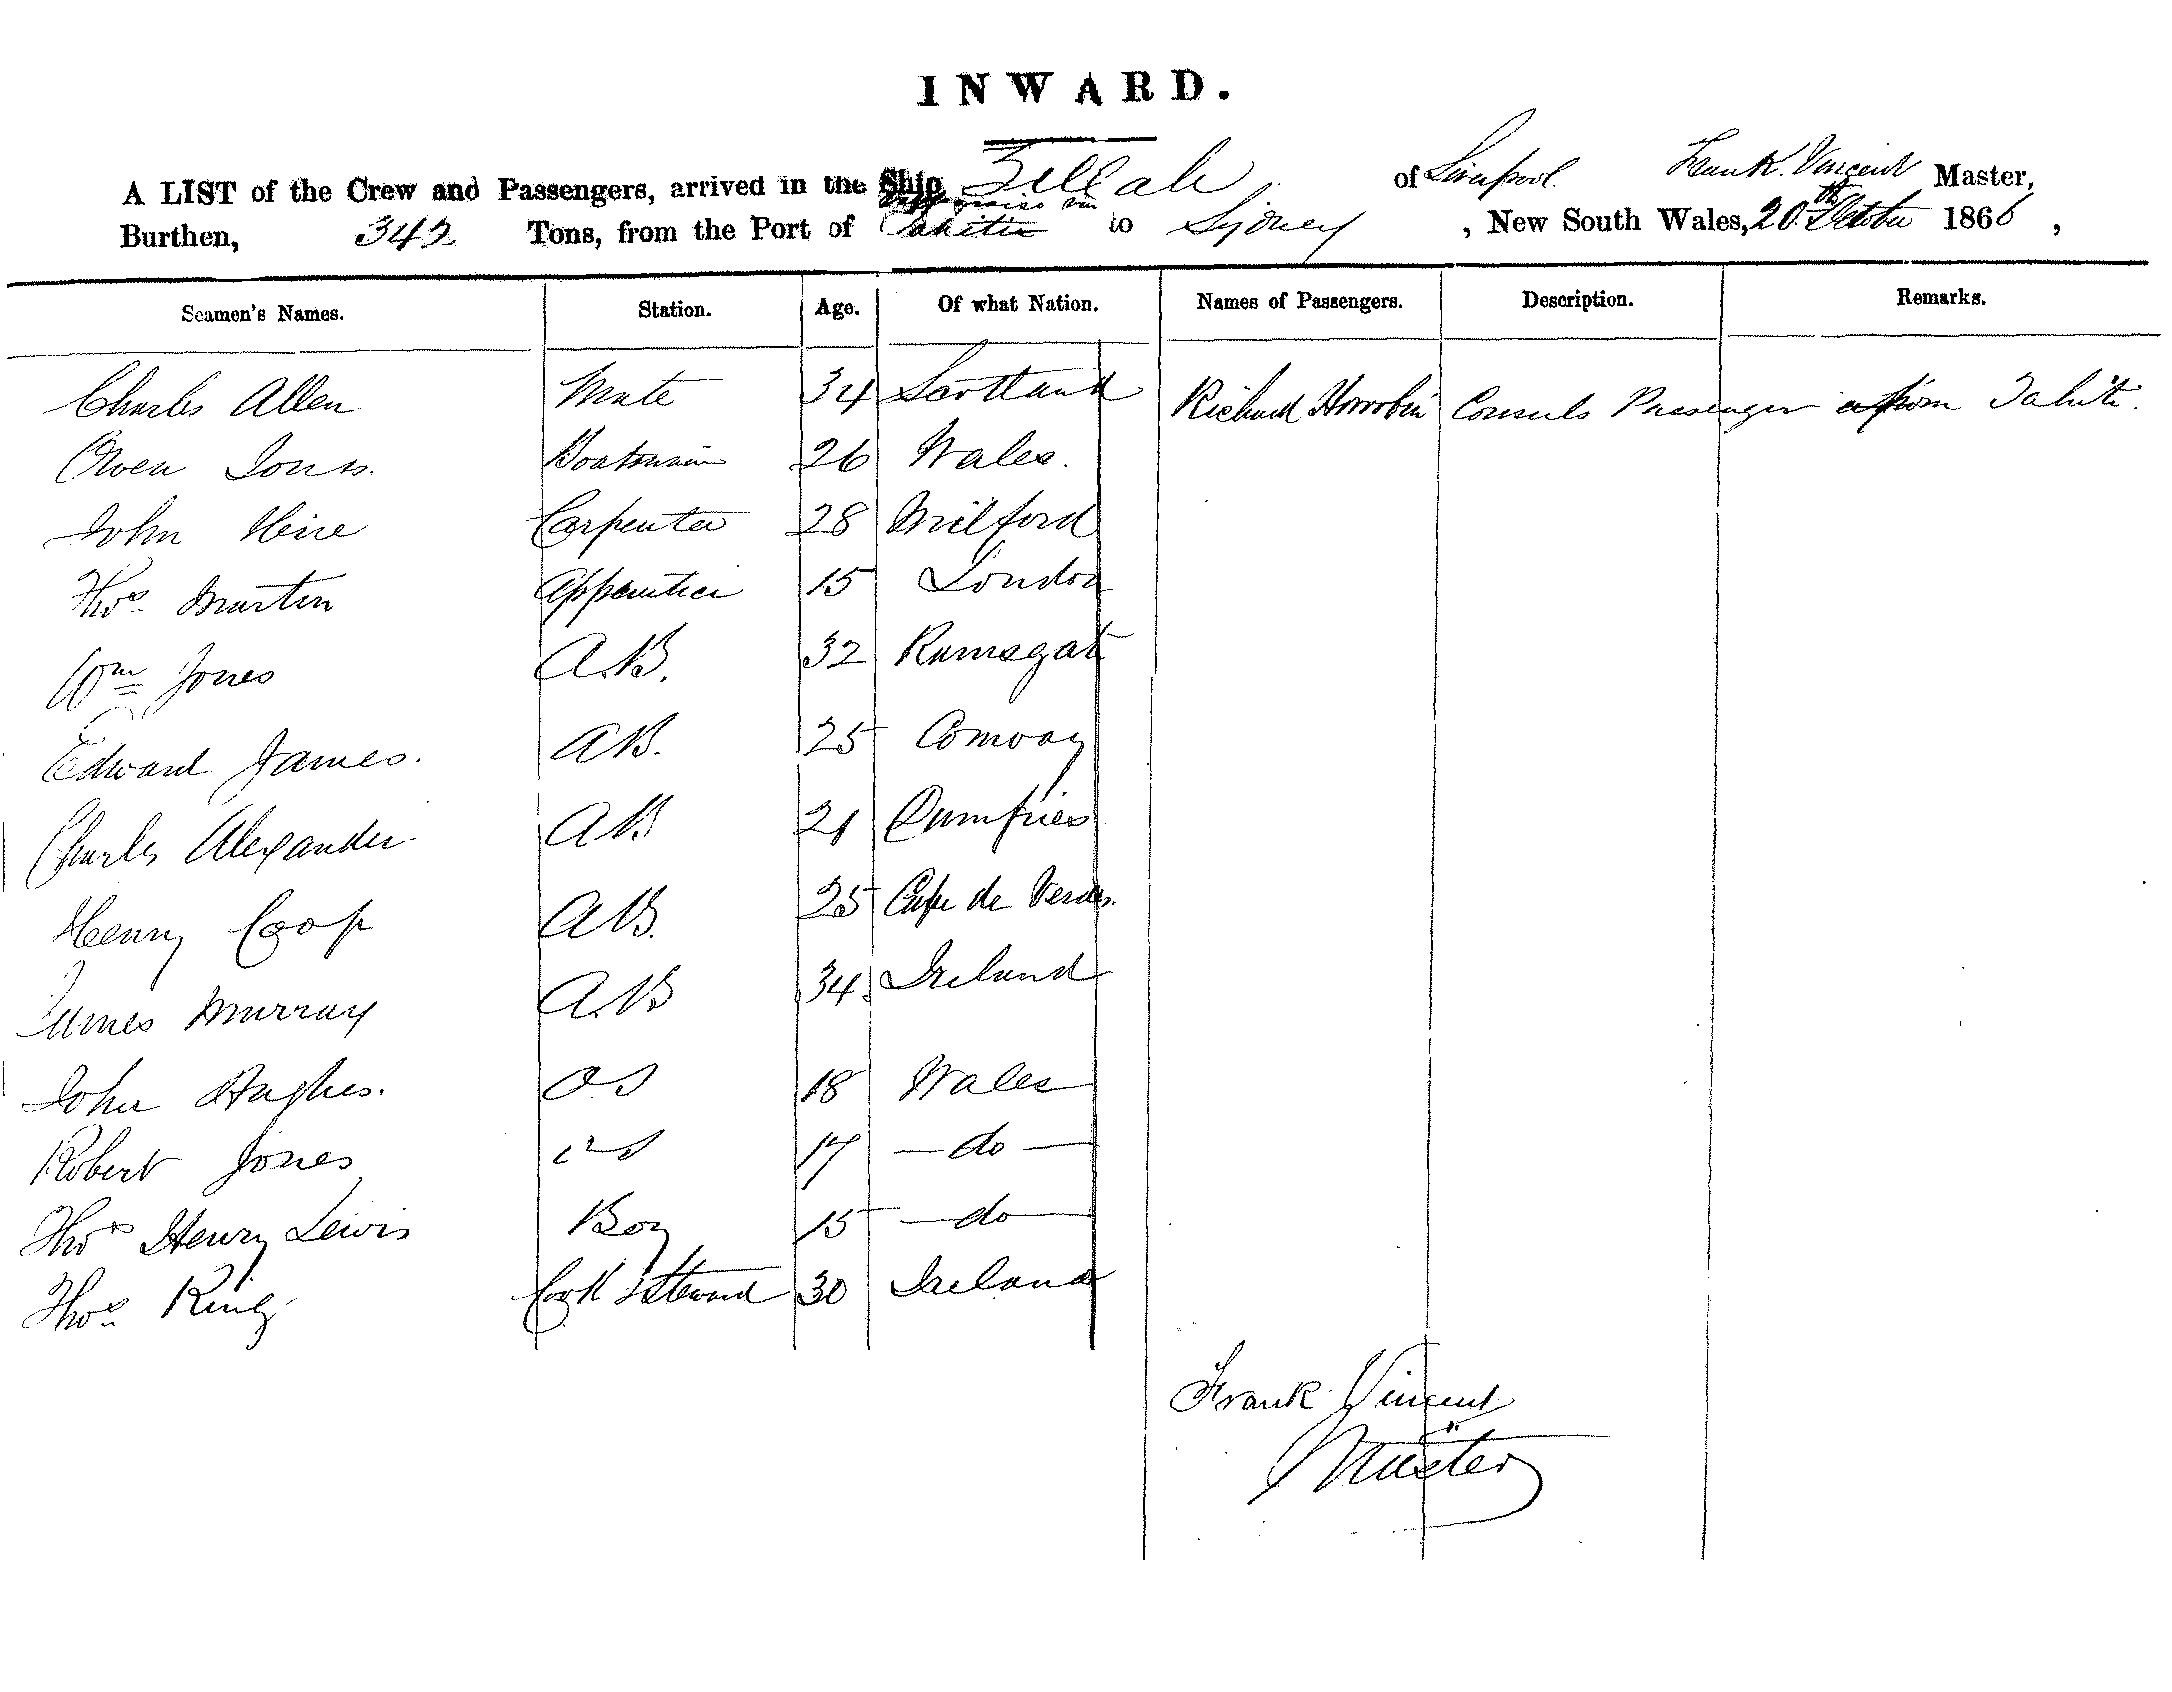 INWARD.
A LIST of the Crew and Passengers, arrived in the Ship Zillah of Liverpool Frank Vincent Master,
Burthen, 342 Tons, from the Port of Tahiti to Sydney, New South Wales, 20th October 1866,
Seamen's Names. Station. Age. Of what Nation. Names of Passengers. Description. Remarks.
Charles Allen Mate 34 Scotland Richard Horrobin Consuls Passenger from Tahiti.
Owen Jones. Boatswain 26 Wales.
John Carpenter 28 Milford
Thos. Martin Apprentice 15 London
Wm Jones A.B. 32 Ramsgate
Edward James. AB. 25 Conway
Charles Alexander AB 21 Dumfries
Henry Coop AB. 25 Cape de Verdes.
James Murray A.B 34. Ireland
John Hughes. OS 18 Wales
Robert Jones OS 17 — do —
Thos Henry Lewis Boy 15 — do —
Thos King Cook & Steward 30 Ireland
Frank Vincent
Master